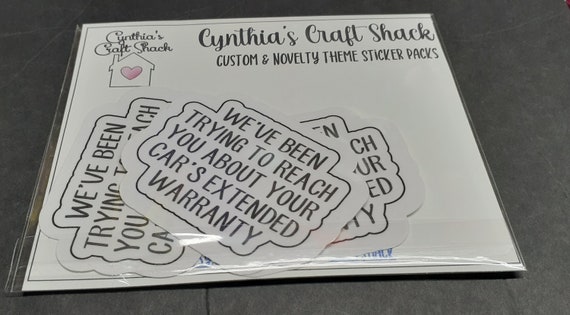 Cynthia's
Craft Shack
Cynthia's Craft Shack
CUSTOM & NOVELTY THEME STICKER PACKS
WE'VE BEEN
TRYING TO REACH
YOU ABOUT YOUR
CAR'S EXTENDED
WARRANTY
WE'VE BEEN
TRYING TO REACH
YOU
CAR'S
BEEN
REACH
YOUR